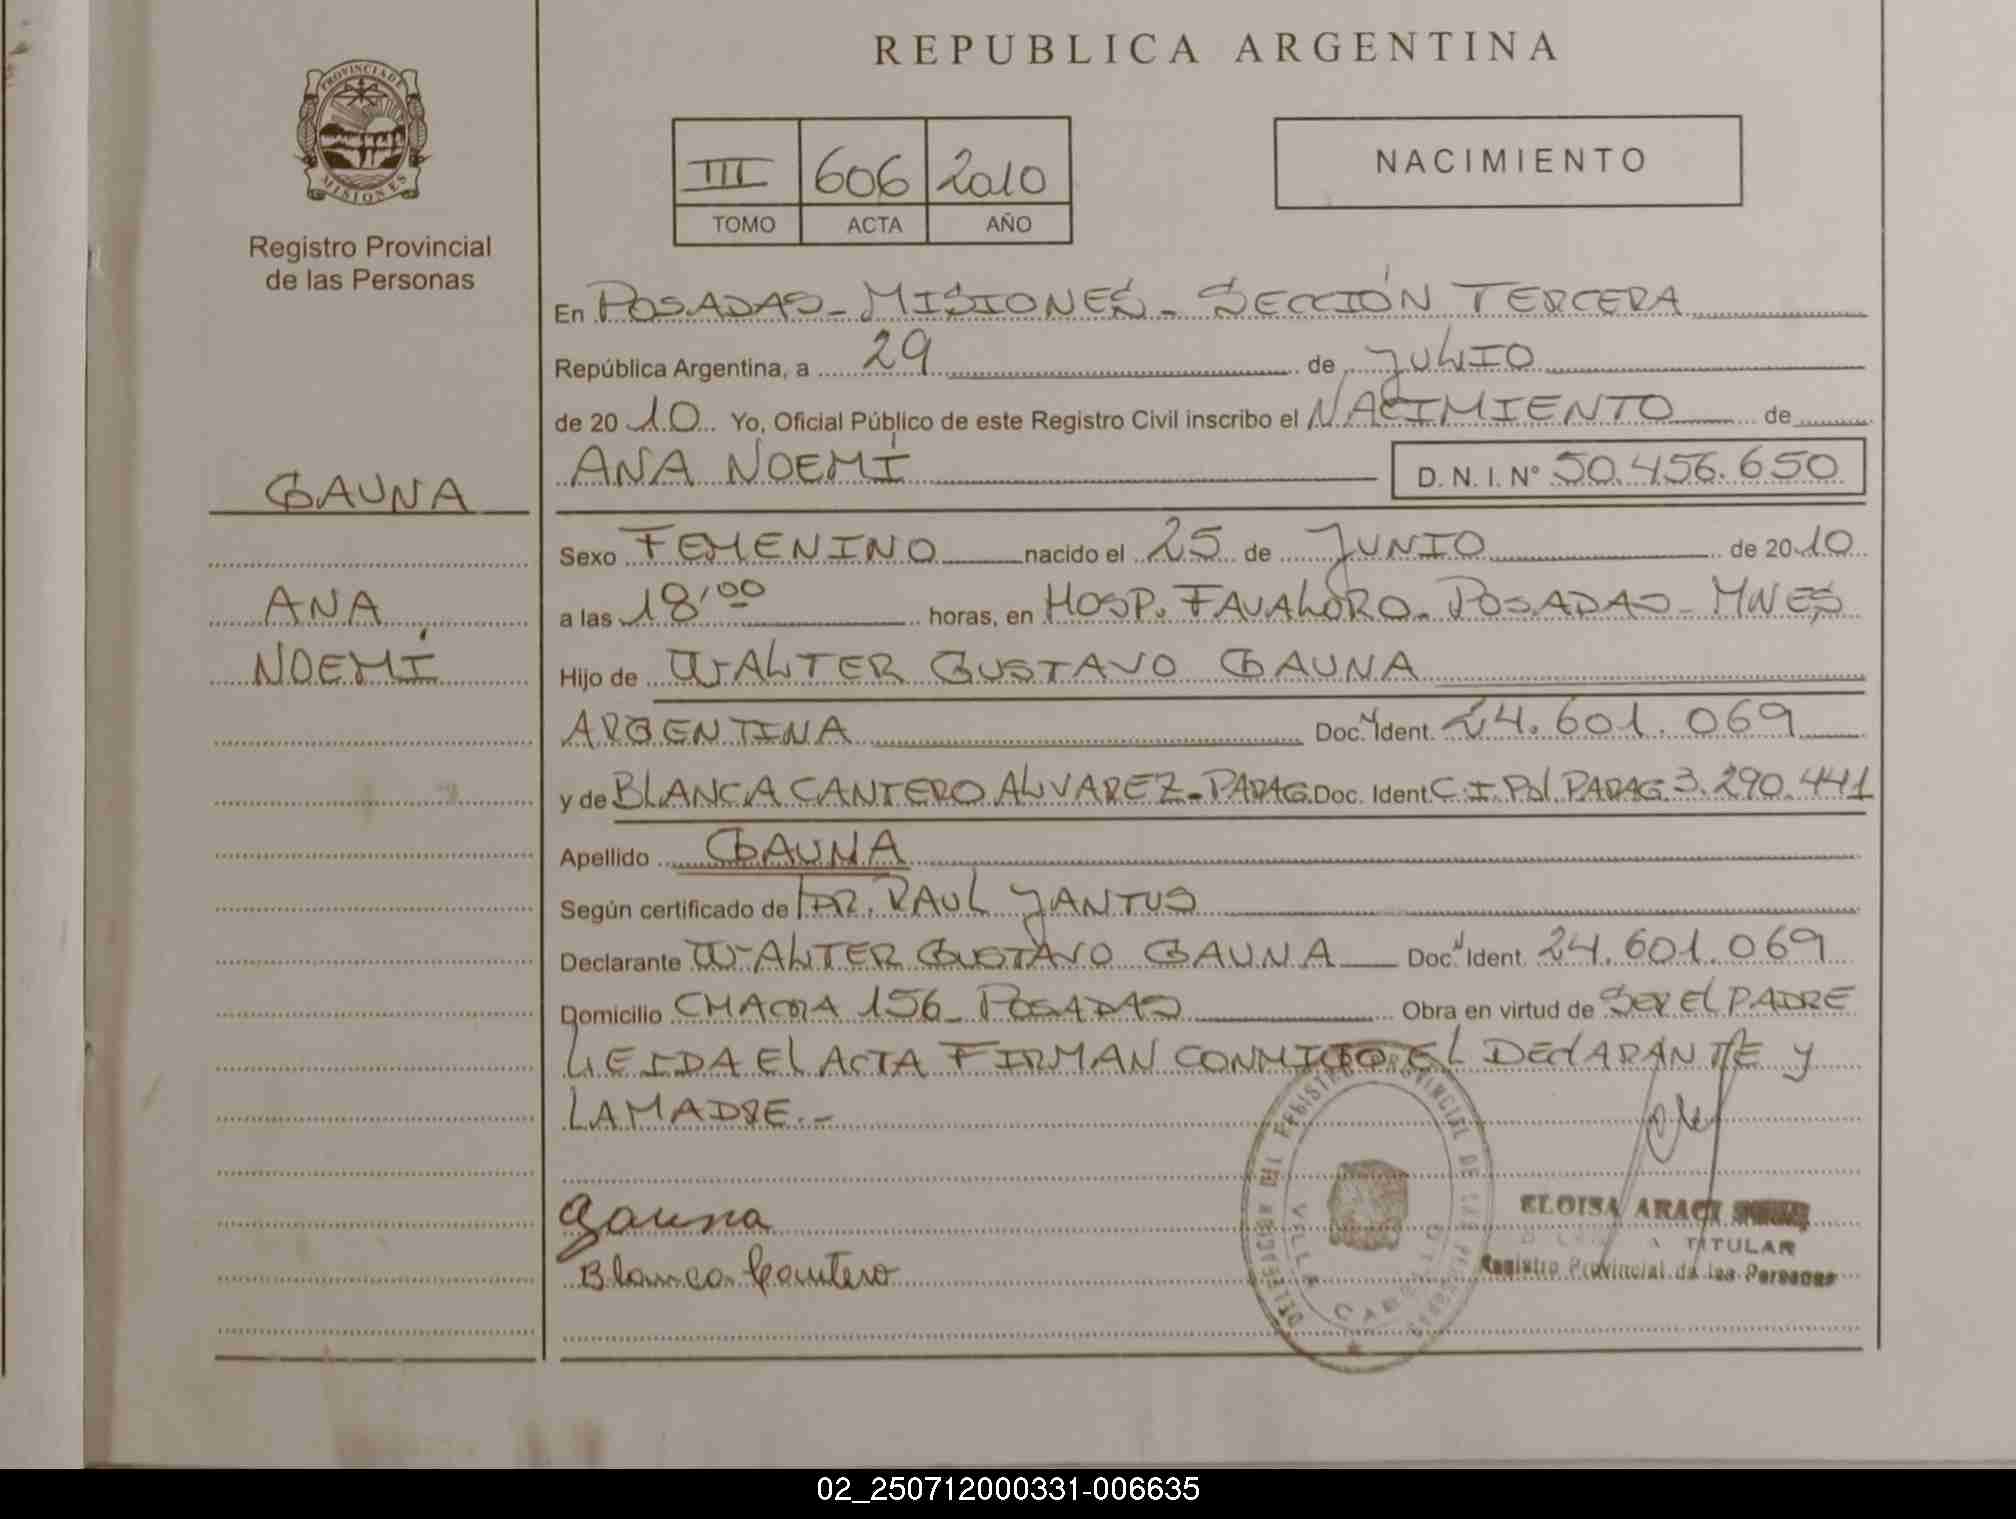 REPUBLICA ARGENTINA
PROVINCIA DE MISIONES
Registro Provincial
de las Personas
III 606 2010
TOMO ACTA AÑO
NACIMIENTO
En POSADAS - MISIONES - SECCIÓN TERCERA
República Argentina, a 29 de JULIO
de 2010 Yo, Oficial Público de este Registro Civil inscribo el NACIMIENTO de
ANA NOEMÍ D. N. I. Nº 50.456.650
GAUNA
ANA
NOEMÍ
Sexo FEMENINO nacido el 25 de JUNIO de 2010
a las 18,00 horas, en HOSP. FAVALORO - POSADAS - MNES
Hijo de WALTER GUSTAVO GAUNA
ARGENTINA Doc. N Ident. 24.601.069
y de BLANCA CANTERO ALVAREZ - PARAG. Doc. Ident C.I. Pol. PARAG. 3.290.441
Apellido GAUNA
Según certificado de DR. RAUL JANTUS
Declarante WALTER GUSTAVO GAUNA Doc. N Ident. 24.601.069
Domicilio CHACRA 156 - POSADAS Obra en virtud de SER EL PADRE
LEIDA EL ACTA FIRMAN CONMIGO EL DECLARANTE Y
LA MADRE.-
Gauna
Blanca Cantero
DELEGACION DEL REGISTRO PROVINCIAL DE LAS PERSONAS
VILLA CABELLO
ELOISA ARACI
TITULAR
Registro Provincial de las Personas
02_250712000331-006635